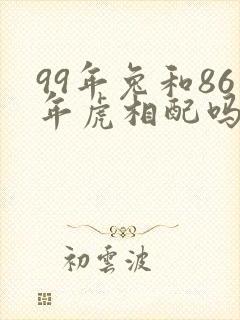 99年兔和86
年虎相配吗
初雲波